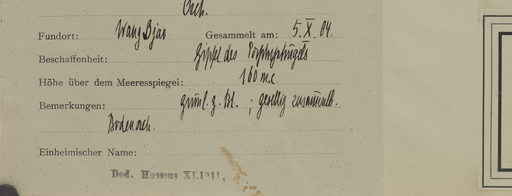 Orch.
Fundort: Wang Djao Gesammelt am: 5. X. 04.
Beschaffenheit: Gipfel des Porphyrhügels
Höhe über dem Meeresspiegel: 160 m.
Bemerkungen: grünl. g. Bl.; gesellig
Bodenorch.
Einheimischer Name:
Ded. Hosseus XI.1911.